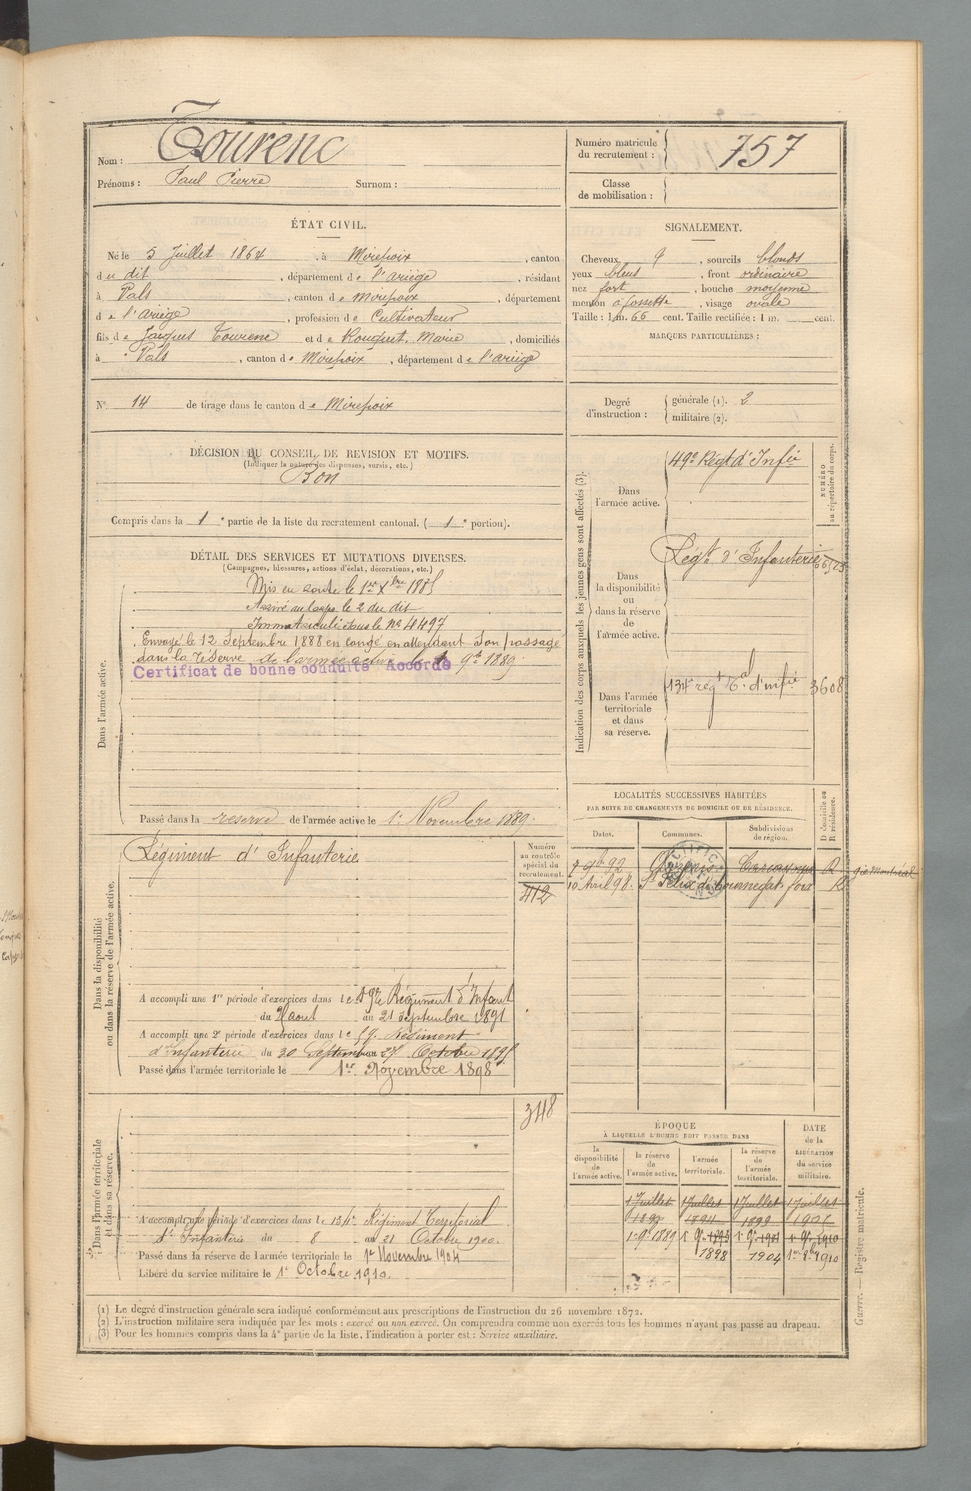 Nom : Tourenc
Prénoms : Paul Pierre Surnom :
Numéro matricule du recrutement : 757
Classe de mobilisation :
ÉTAT CIVIL.
Né le 5 Juillet 1864, à Mirepoix, canton
du dit, département de l'Ariège, résidant
à Vals, canton de Mirepoix, département
de l'Ariège, profession de Cultivateur
fils de Jacques Tourenc et de Rouquet, Marie, domiciliés
à Vals, canton de Mirepoix, département de l'Ariège
SIGNALEMENT.
Cheveux, sourcils blonds
yeux bleus, front ordinaire
nez fort, bouche moyenne
menton à fossette, visage ovale
Taille : 1 m. 66 cent. Taille rectifiée : 1 m. cent.
MARQUES PARTICULIÈRES :
N° 14 de tirage dans le canton de Mirepoix
Degré d'instruction : générale (1). 2
militaire (2).
DÉCISION DU CONSEIL DE REVISION ET MOTIFS.
(Indiquer la nature des dispenses, sursis, etc.)
Bon
Compris dans la 1e partie de la liste du recrutement cantonal. (1e portion).
DÉTAIL DES SERVICES ET MUTATIONS DIVERSES.
(Campagnes, blessures, actions d'éclat, décorations, etc.)
Dans l'armée active.
Mis en route le 1er Xbre 1885
Arrivé au corps le 2 du dit
Immatriculé sous le No 4497
Envoyé le 12 Septembre 1888 en congé en attendant son passage
dans la réserve de l'armée active le 1er 9bre 1889.
Certificat de bonne conduite Accordé
Passé dans la réserve de l'armée active le 1er Novembre 1889.
Indication des corps auxquels les jeunes gens sont affectés (3).
NUMÉRO au répertoire du corps.
Dans l'armée active.
49e Régt d'Infie
Dans la disponibilité ou dans la réserve de l'armée active.
Régt d'Infanterie
Dans l'armée territoriale et dans sa réserve.
134e régt tal d'infie 3608
LOCALITÉS SUCCESSIVES HABITÉES
PAR SUITE DE CHANGEMENTS DE DOMICILE OU DE RÉSIDENCE.
Dates. Communes. Subdivisions de région. D domicile ou R résidence.
7 9bre 92 Carcassonne R gie Montréal
10 Avril 98. St Félix de tournegat foix R
Dans la disponibilité ou dans la réserve de l'armée active.
Régiment d'Infanterie
Numéro au contrôle spécial du recrutement.
412
A accompli une 1re période d'exercices dans le Régiment d'Infant
du août au 21 Septembre 1891
A accompli une 2e période d'exercices dans le 59e Régiment
d'Infanterie du 30 Septembre au 27 Octobre 1895
Passé dans l'armée territoriale le 1er Novembre 1898
Dans l'armée territoriale et dans sa réserve.
348
A accompli une période d'exercices dans le 134e Régiment Territorial
d'Infanterie du 8 au 21 Octobre 1900.
Passé dans la réserve de l'armée territoriale le 1er Novembre 1904
Libéré du service militaire le 1er Octobre 1910.
ÉPOQUE
À LAQUELLE L'HOMME DOIT PASSER DANS
DATE de la LIBÉRATION du service militaire.
la disponibilité de l'armée active. la réserve de l'armée active. l'armée territoriale. la réserve de l'armée territoriale.
1 Juillet 1 Juillet 1 Juillet 1 Juillet
1894 1899
1er 9bre 1889
1898 1904 1910
Guerre. — Registre matricule.
(1) Le degré d'instruction générale sera indiqué conformément aux prescriptions de l'instruction du 26 novembre 1872.
(2) L'instruction militaire sera indiquée par les mots : exercé ou non exercé. On comprendra comme non exercés tous les hommes n'ayant pas passé au drapeau.
(3) Pour les hommes compris dans la 4e partie de la liste, l'indication à porter est : Service auxiliaire.